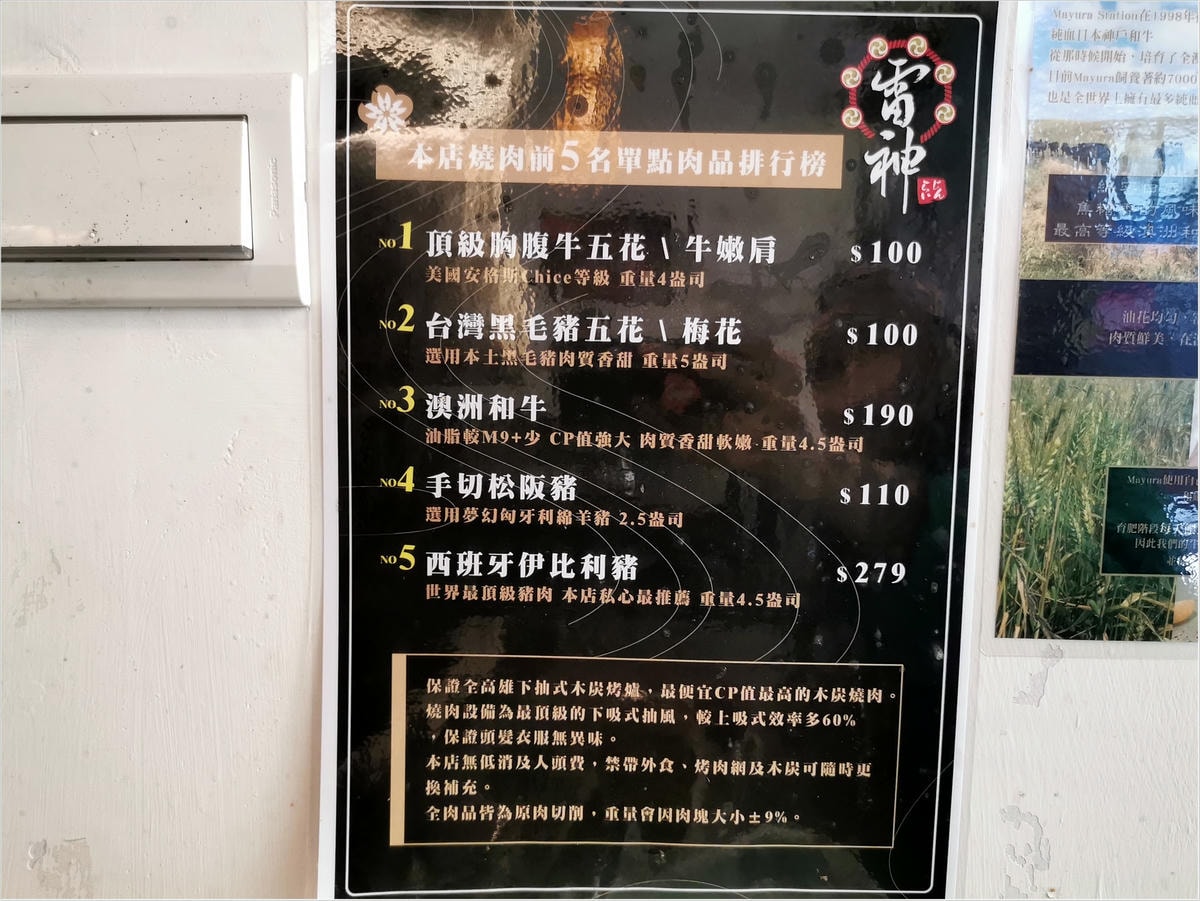 雷神
本店燒肉前5名單點肉品排行榜
NO1 頂級胸腹牛五花 \ 牛嫩肩 $100
美國安格斯Chice等級 重量4盎司
NO2 台灣黑毛豬五花 \ 梅花 $100
選用本土黑毛豬肉質香甜 重量5盎司
NO3 澳洲和牛 $190
油脂較M9+少 CP值強大 肉質香甜軟嫩 重量4.5盎司
NO4 手切松阪豬 $110
選用夢幻匈牙利綿羊豬 2.5盎司
NO5 西班牙伊比利豬 $279
世界最頂級豬肉 本店私心最推薦 重量4.5盎司
保證全高雄下抽式木炭烤爐，最便宜CP值最高的木炭燒肉。
燒肉設備為最頂級的下吸式抽風，較上吸式效率多60%
，保證頭髮衣服無異味。
本店無低消及人頭費，禁帶外食、烤肉網及木炭可隨時更
換補充。
全肉品皆為原肉切削，重量會因肉塊大小±9%。
Panasonic
Mayura Station在1998年
純血日本神戶和牛
從那時候開始，培育了全
目前Mayura飼養著約7000
也是全世界上擁有最多純血
最高等級澳洲和
油花均勻，
肉質鮮美，在
Mayura使用自
育肥階段每天
因此我們的牛